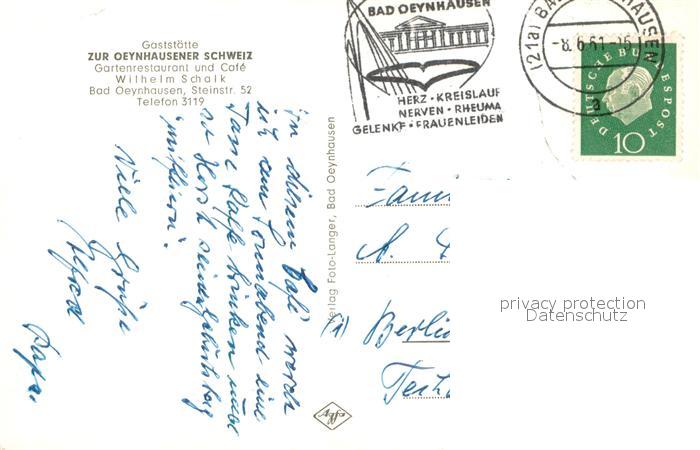 Gaststätte
ZUR OEYNHAUSENER SCHWEIZ
Gartenrestaurant und Café
Wilhelm Schalk
Bad Oeynhausen, Steinstr. 52
Telefon 3119
BAD OEYNHAUSEN
HERZ · KREISLAUF
NERVEN · RHEUMA
GELENKE · FRAUENLEIDEN
(21a) BAD OEYNHAUSEN
-8.6.61
a
DEUTSCHE BUNDESPOST
10
In diesem Café werde
ich am Sonnabend eine
Tasse Kaffee trinken und
so Horst seinen Geburtstag
"mitfeiern".
Viele Grüße
Papa
Verlag Foto-Langer, Bad Oeynhausen
Fam
A.
(1) Berli
Agfa
privacy protection
Datenschutz